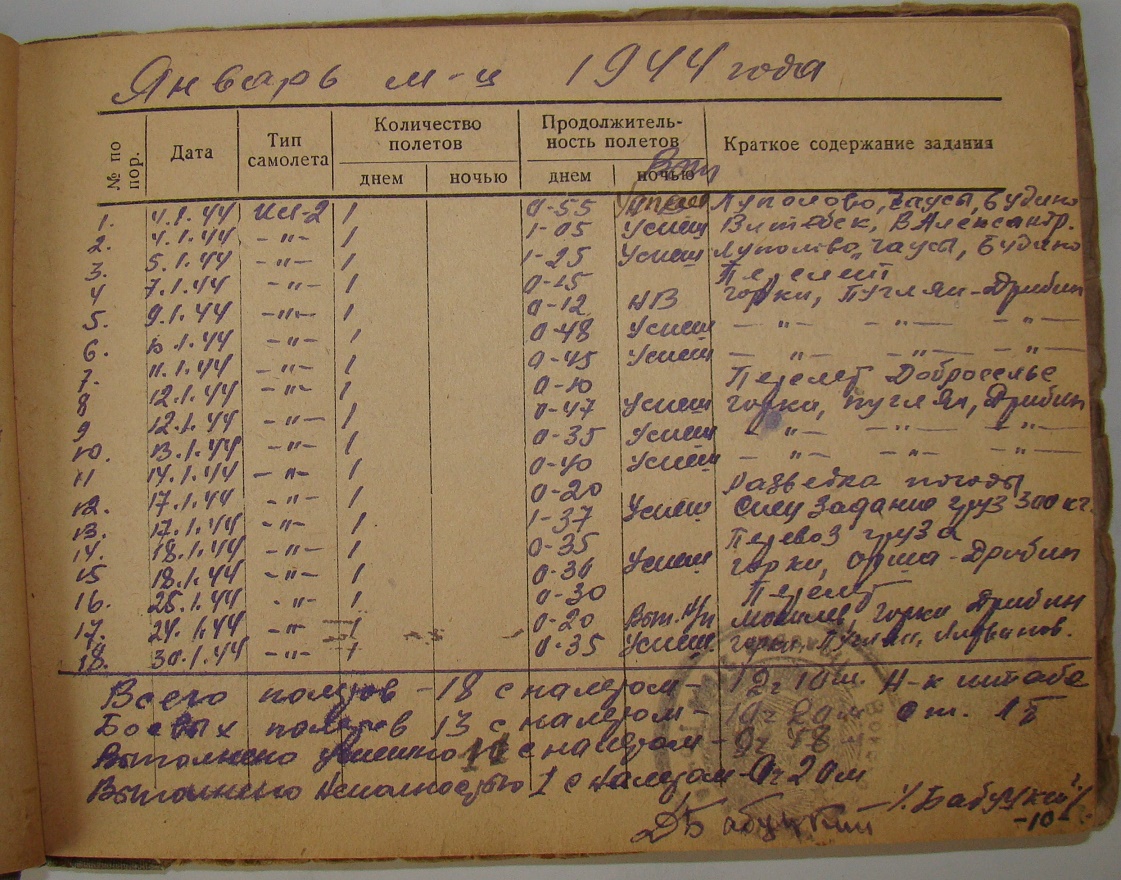 Январь м-ц 1944 года
№ по пор. Дата Тип самолета Количество полетов Продолжитель-ность полетов Краткое содержание задания
днем ночью днем ночью
1. 4.1.44 Ил-2 1 0-55 Луполово, Чаусы, Будино
2. 4.1.44 -"- 1 1-05 Успеш Витебск, В Александр.
3. 5.1.44 -"- 1 1-25 Успеш Луполово, Чаусы, Будино
4 7.1.44 -"- 1 0-15 Перелет
5. 9.1.44 -"- 1 0-12 НВ Горки, Пугляи-Дрибин
6. 1 0-48 Успеш -"- -"- -"-
7. 11.1.44 -"- 1 0-45 Успеш -"- -"- -"-
8 12.1.44 -"- 1 0-10 Перелет Доброселье
9 12.1.44 -"- 1 0-47 Успеш Горки, Пугляи, Дрибин
10. 13.1.44 -"- 1 0-35 Успеш -"- -"- -"-
11 14.1.44 -"- 1 0-40 Успеш -"- -"- -"-
12. 17.1.44 -"- 1 0-20 Разведка погоды
13. 17.1.44 -"- 1 1-37 Успеш Спец задание груз 300 кг.
14. 18.1.44 -"- 1 0-35 Перевоз груза
15 18.1.44 -"- 1 0-30 Успеш Горки, Орша-Дрибин
16. 25.1.44 -"- 1 0-30 Перелет
17. 29.1.44 -"- 1 0-20 Вып. Н/п Горки Дрибин
18. 30.1.44 -"- 1 0-35 Успеш Горки,
Всего полетов - 18 с налетом - 12ч 10м Н-к штаба
Боевых полетов 13 с налетом -
Выполнено успешно 11 с налетом - 9ч 18
Выполнено неполностью 1 с налетом - 0ч 20м
/Бабуцкий/
-10-